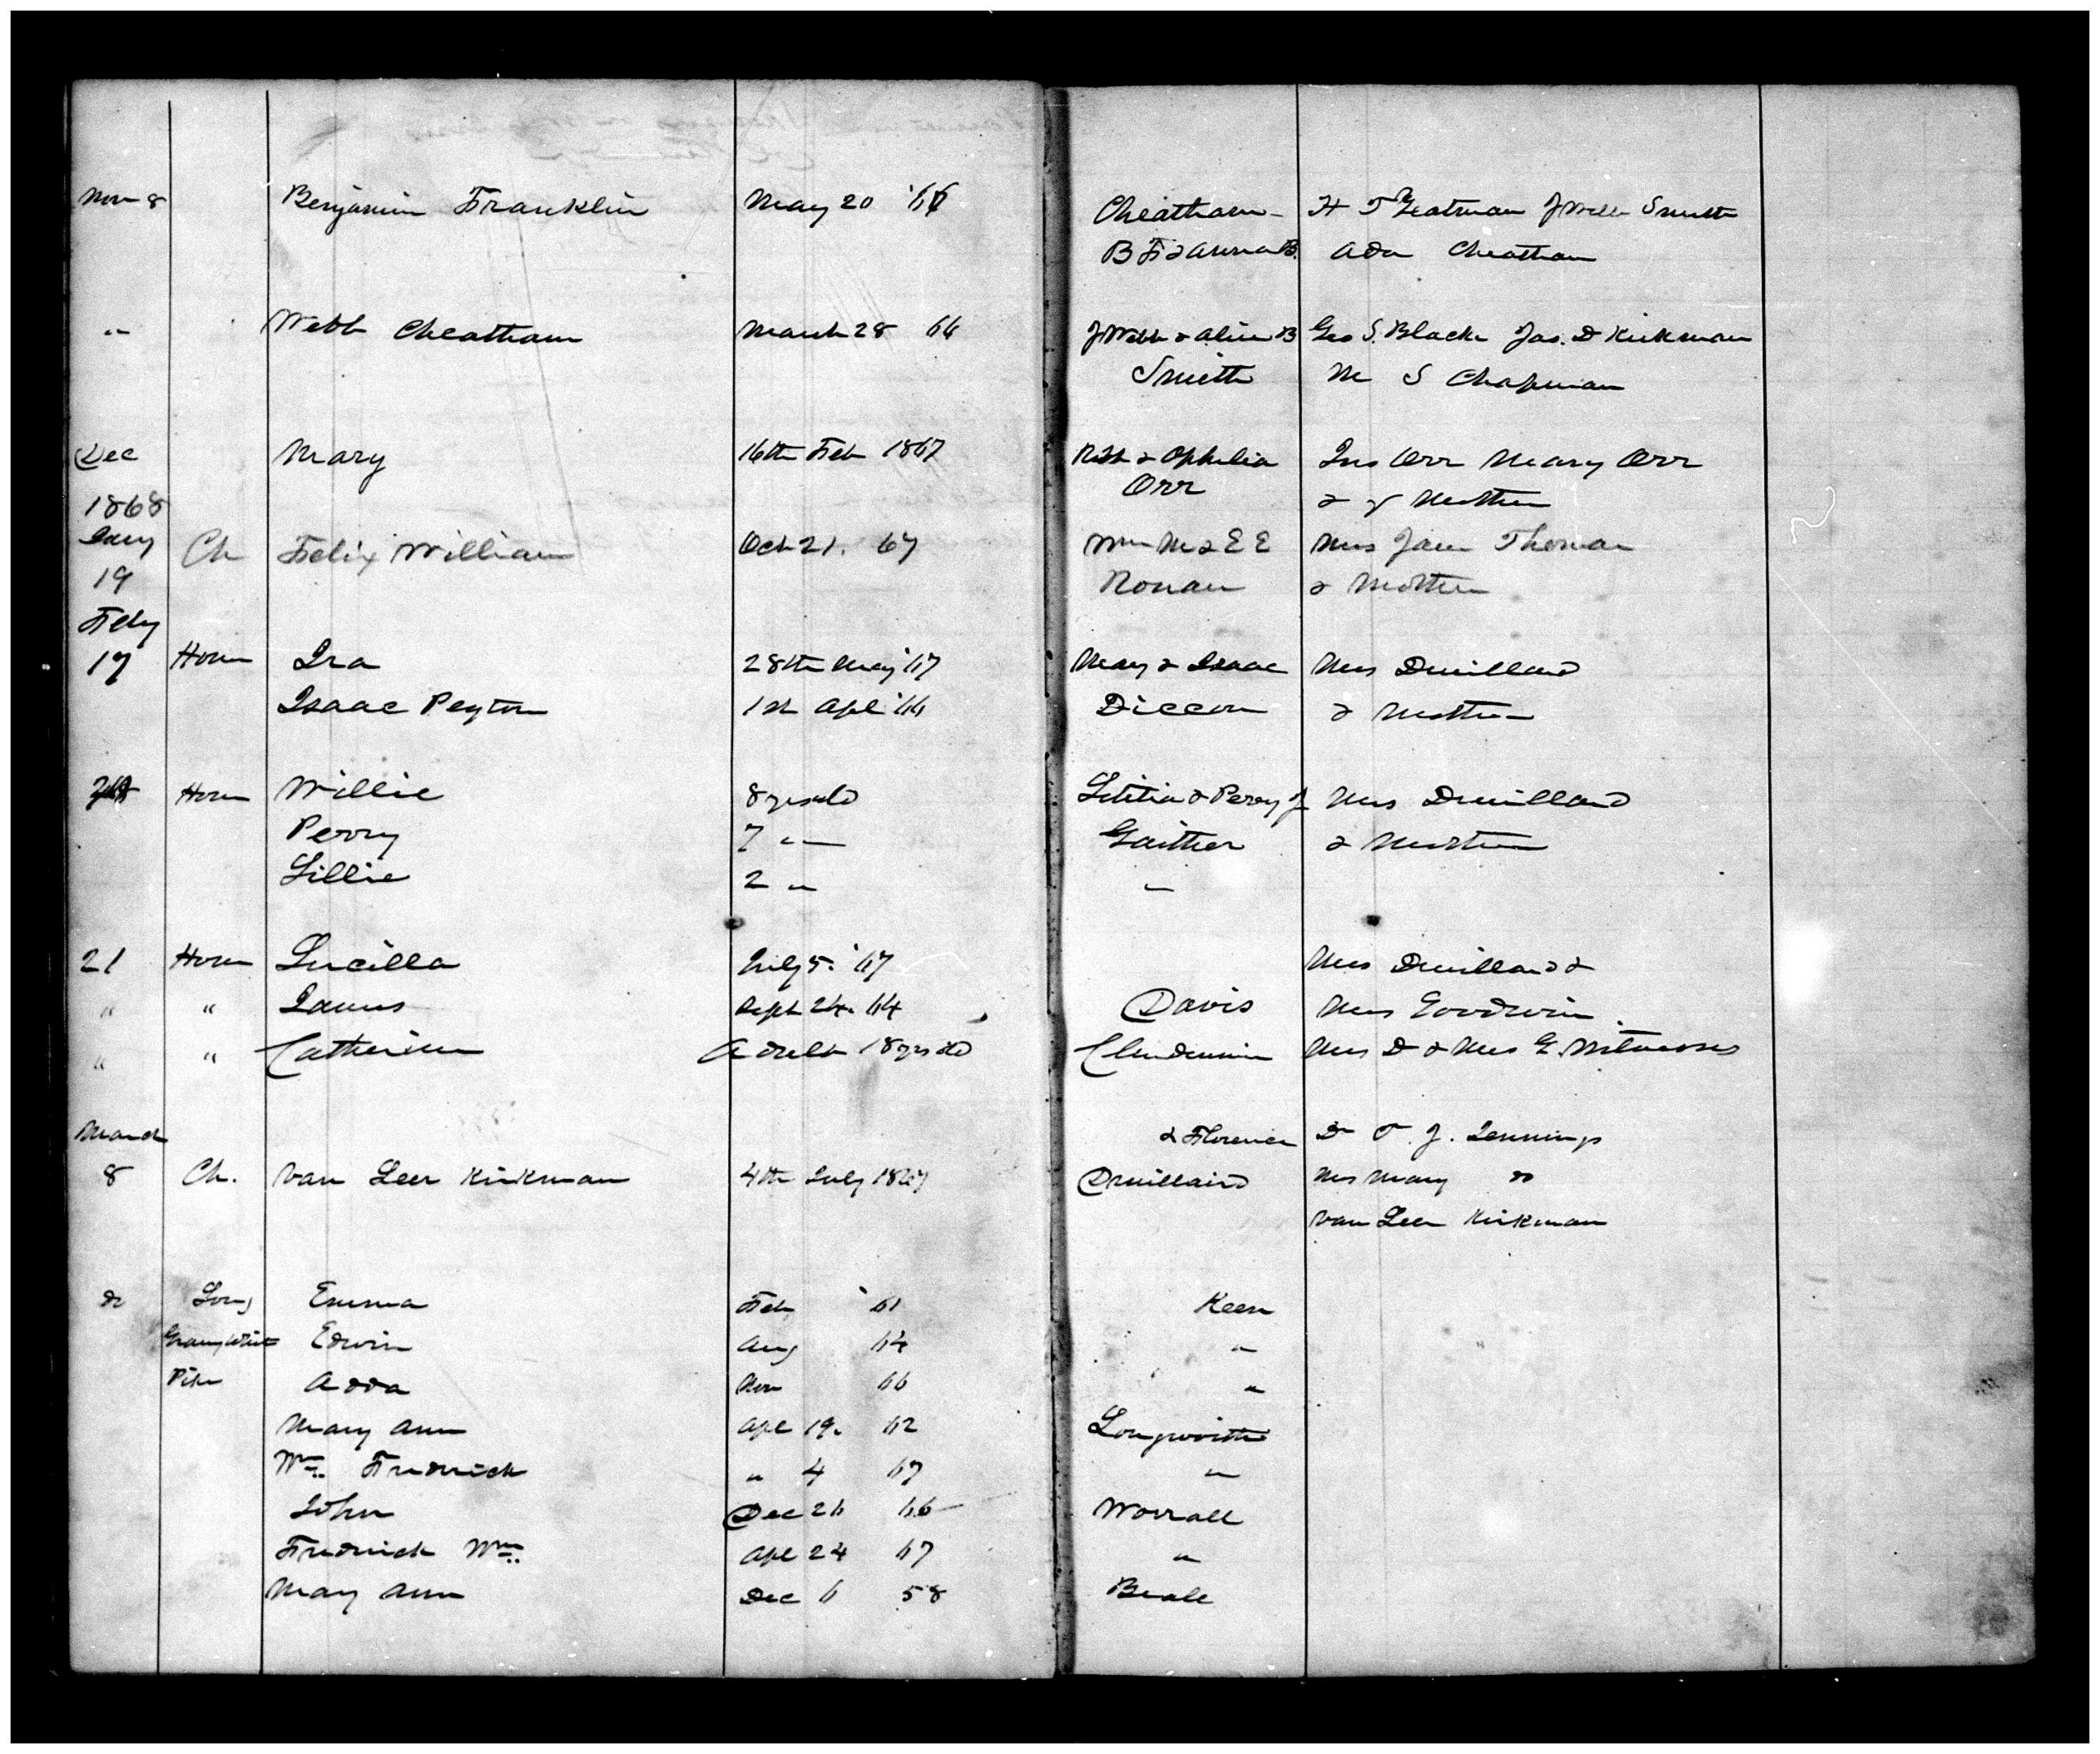 Nov 8 Benjamin Franklin May 20 '67 Cheatham H T Yeatman J Webb Smith
B F & Anna B. Ada Cheatham
" Webb Cheatham March 28 66 J Webb & Alice B Geo S. Black Jas. D Kirkman
Smith M S Chapman
Dec Mary 16th Feb 1867 Robt & Ophelia Jno Orr Mary Orr
Orr & Mother
1868
Jany Ch Felix William Oct 21. 67 Wm M & E E Mrs Jane Thomas
19 Ronan & Mother
Feby
17 House Ira 28th May '67 Mary & Isaac Mrs Druillard
Isaac Peyton 1st Apl '66 & Mother
House Willie 8 yrs old Letitia & Perry J Mrs Druillard
Perry 7 " Gaither & Mother
Lillie 2 " "
21 House Lucilla July 5. '67 Mrs Druillard &
" " James Sept 24. 64 Davis Mrs Goodwin
" " Catherine Adult 18 yrs old Clendennin Mrs D & Mrs G. Witnesses
March & Florence Dr T. J. Jennings
8 Ch. Van Leer Kirkman 4th July 1867 Druillard Mrs Mary do
Van Leer Kirkman
do Emma Feb 61 Keen
Granny White Edwin Aug 64 "
Pike Adda Nov 66 "
Mary Ann Apl 19. 62 Longworth
Wm. Fredrick " 4 67 "
John Dec 26 66 Worrall
Fredrick Wm. Apl 24 67 "
Mary Ann Dec 6 58 Beale